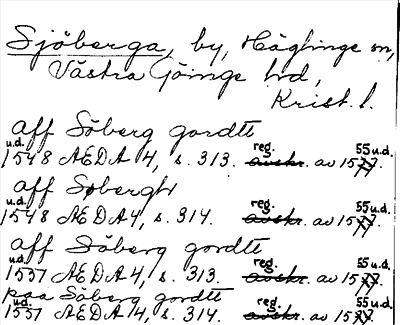 Sjöberga, by, Häglinge sn,
Västra Göinge hd,
Krist. l.
aff Söberg gordtt
u.d. reg. 55 u.d.
1548 ÆDA 4, s. 313. avskr. av 1577.
aff Søbergh
u.d. reg. 55 u.d.
1548 ÆDA 4, s. 314. avskr. av 1577.
aff Söberg gordtt
u.d. reg. 55 u.d.
1557 ÆDA 4, s. 313. avskr. av 1577.
paa Söberg gordtt
u.d. reg. 55 u.d.
1557 ÆDA 4, s. 314. avskr. av 1577.